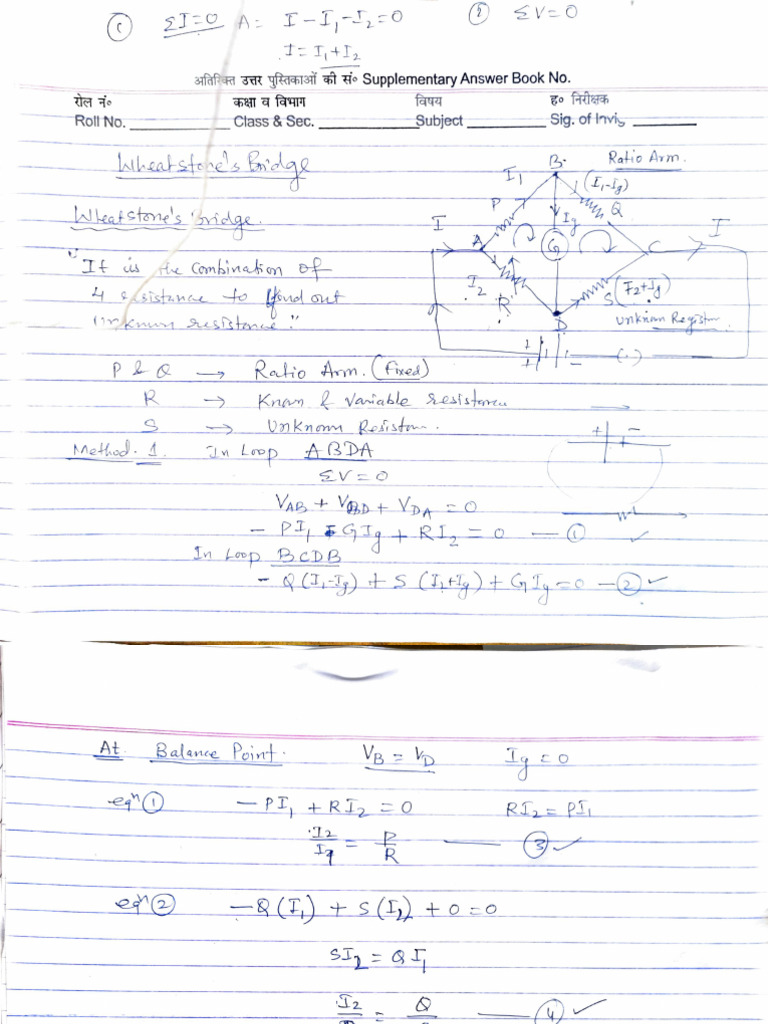 ① ΣI=0 A= I-I₁-I₂=0 ② ΣV=0
I=I₁+I₂
अतिरिक्त उत्तर पुस्तिकाओं की सं० Supplementary Answer Book No.
रोल नं० कक्षा व विभाग विषय ह० निरीक्षक
Roll No. Class & Sec. Subject Sig. of Invis
Wheatstone's Bridge
Wheatstone's Bridge.
"It is the combination of
4 resistance to find out
unknown resistance."
Ratio Arm.
B
I₁ (I₁-Ig)
P Q
I Ig I
A G C
I₂ R S (I₂+Ig)
D Unknown Resistor
P & Q → Ratio Arm. (fixed)
R → Known & Variable resistance
S → Unknown Resistor.
+ -
+
Method. 1. In Loop ABDA
ΣV=0
V_AB + V_BD + V_DA = 0
- PI₁ - GIg + RI₂ = 0 — ①
In Loop BCDB
- Q(I₁-Ig) + S (I₂+Ig) + GIg=0 — ②
At Balance Point. V_B = V_D Ig = 0
eqⁿ ① -PI₁ + RI₂ = 0 RI₂ = PI₁
I₂/I₁ = P/R — ③
eqⁿ ② -Q(I₁) + S(I₂) + 0 = 0
SI₂ = QI₁
I₂ = Q — ④